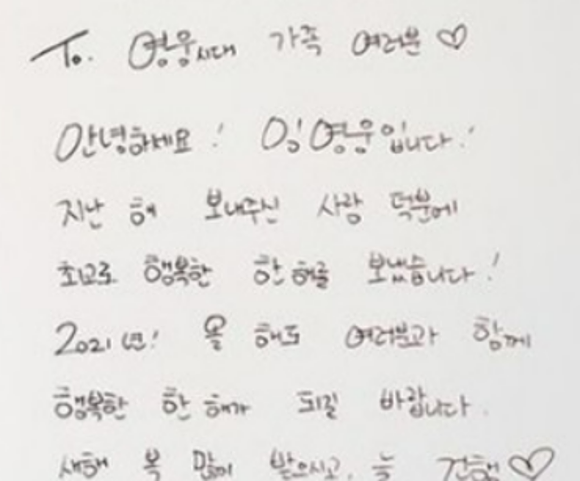 To. 영웅시대 가족 여러분 ♡
안녕하세요! 임영웅입니다!
지난 해 보내주신 사랑 덕분에
최고로 행복한 한 해를 보냈습니다!
2021년! 올 해도 여러분과 함께
행복한 한 해가 되길 바랍니다.
새해 복 많이 받으시고, 늘 건행♡